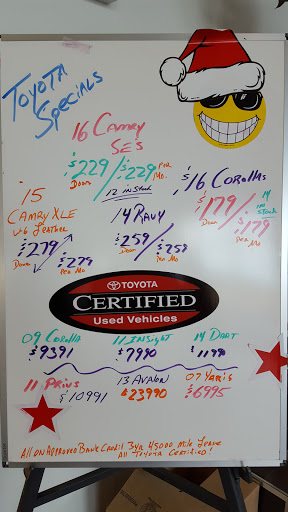 Toyota
Specials
16 Camry
SES
$229 Down / $229 PER Mo.
12 in Stock
$16 Corollas
$179 Down / $179 Per Mo
14 in Stock
15
CAMRY XLE
V-6 Leather
$279 Down / $279 Per Mo
14 RAV4
$259 Down / $259 Per Mo
TOYOTA
CERTIFIED
Used Vehicles
09 Corolla
$9391
11 INSIGHT
$7990
14 DART
$11990
11 Prius
$10991
13 Avalon
$23990
07 Yaris
$6995
All on Approved Bank Credit 3yr 45000 Mile Lease
All Toyota Certified!